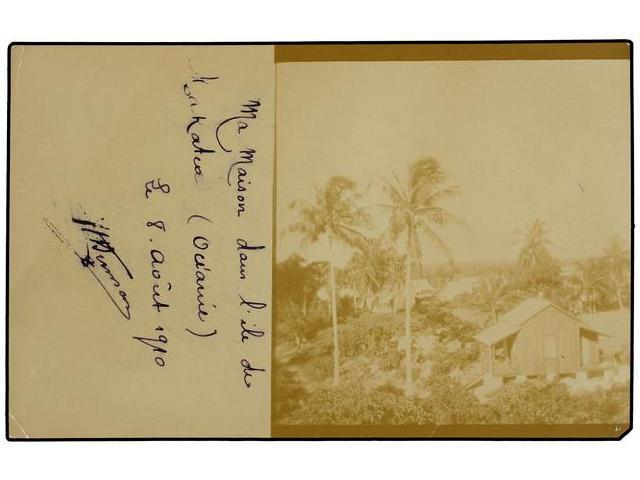 Ma Maison dans l'ile de
Makatea (Océanie)
Le 8. Août 1910